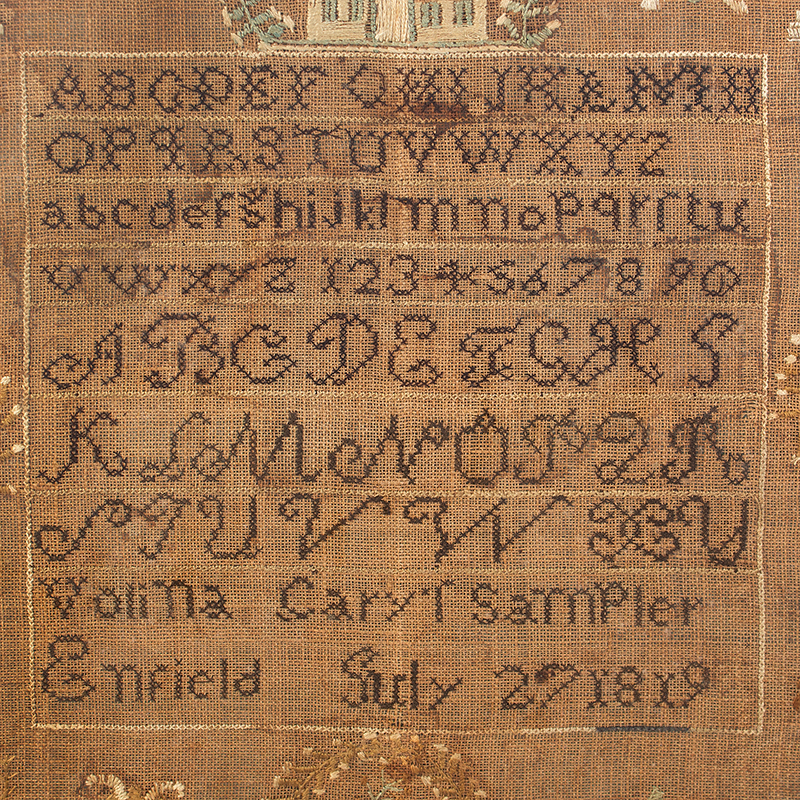 A B C D E F G H I J K L M N
O P Q R S T U V W X Y Z
a b c d e f g h i j k l m n o p q r ſ t u
v w x y z 1 2 3 4 5 6 7 8 9 0
A B C D E F G H I
K L M N O P Q R
S T U V W X Y
Volina Caryſ Sampler
Enfield July 27 1819